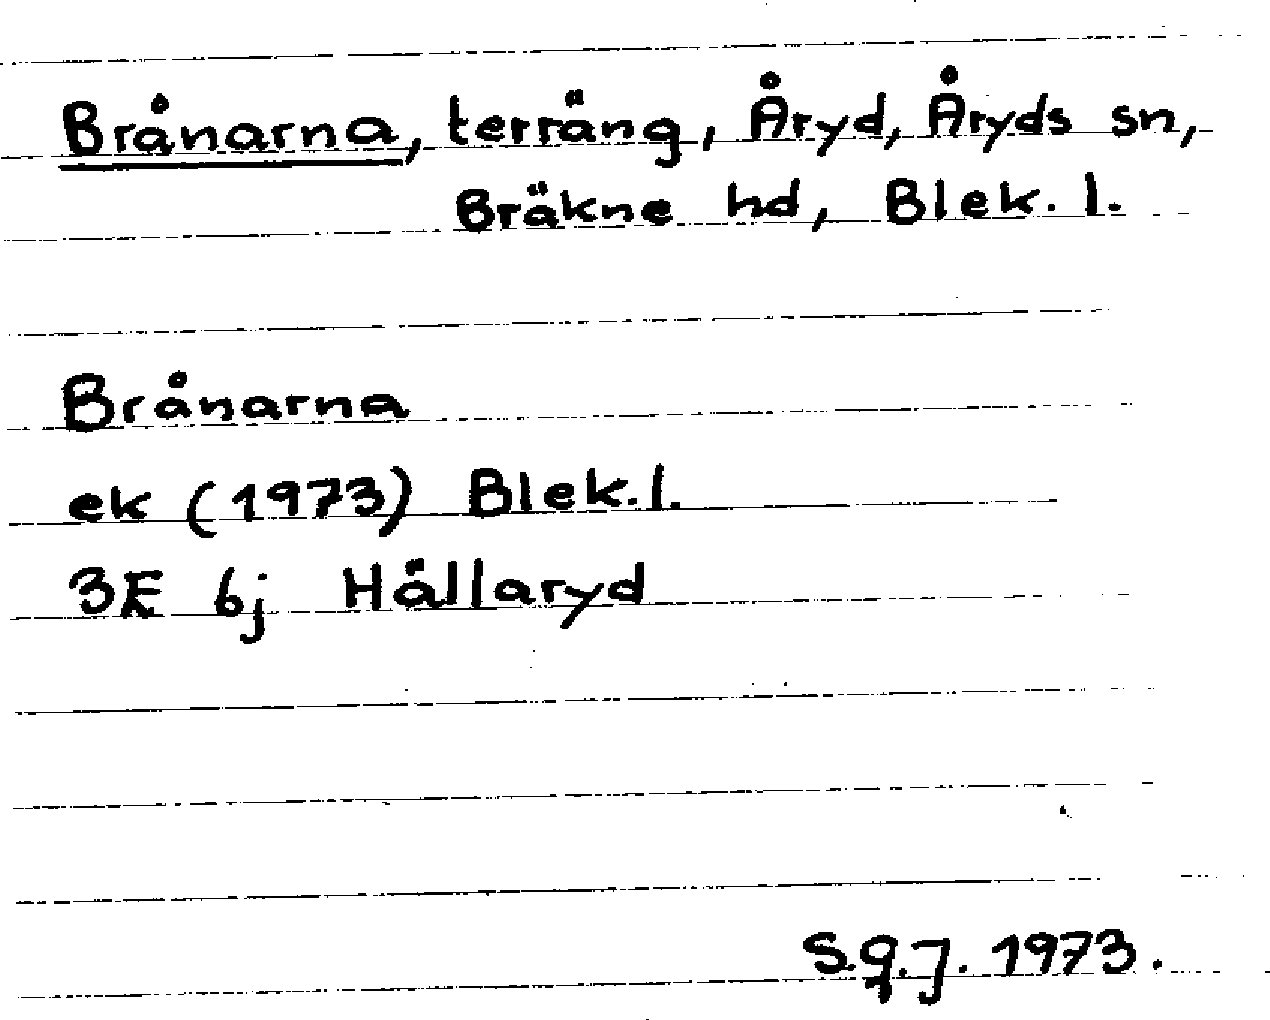 Brånarna, terräng, Åryd, Åryds sn,
Bräkne hd, Blek. l.
Brånarna
ek (1973) Blek. l.
3E 6j Hällaryd
S.G.J. 1973.